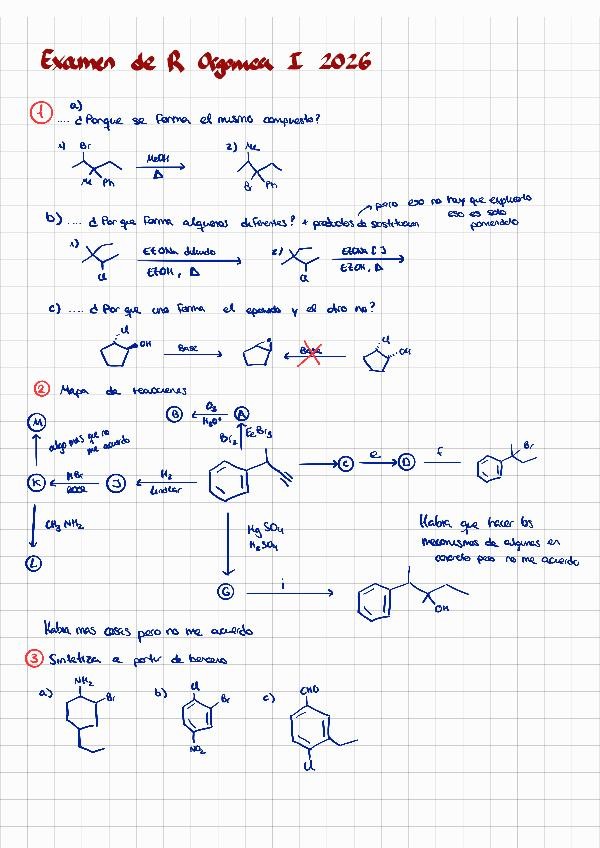 Examen de R Organica I 2026
a)
1 .... ¿Porque se forma el mismo compuesto?
1) Br Me Ph MeOH Δ 2) Me Br Ph
→ pero eso no hay que explicarlo
eso es solo
ponerlo
b) .... ¿Por que forma alquenos diferentes? + productos de sustitucion
1) Cl EtONa diluido EtOH, Δ 2) Cl EtONa [ ] EtOH, Δ
c) .... ¿Por que uno forma el epoxido y el otro no?
Cl OH Base O Base Cl OH
2 Mapa de reacciones
M B O3 H2O+ A
algo mas que no
me acuerdo
Br2 FeBr3
K HBr ROOR J H2 Lindlar C e D f Br
CH3NH2
HgSO4
H2SO4
Habia que hacer los
mecanismos de algunas en
concreto pero no me acuerdo
L
G i OH
Habia mas cosas pero no me acuerdo
3 Sintetiza a partir de benceno
a) NH2 Br b) Cl Br NO2 c) CHO Cl